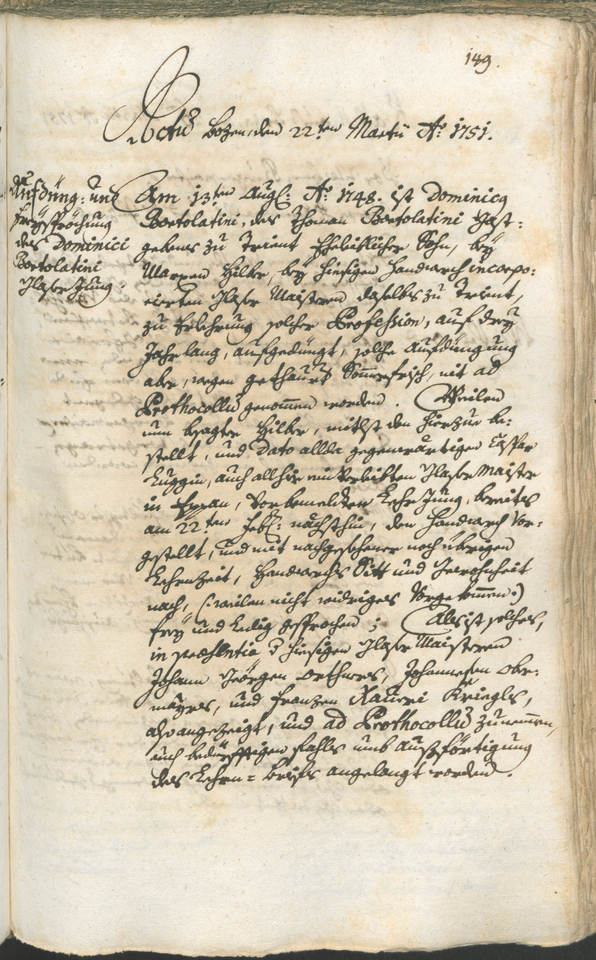 149.
Actũ Bozen, den 22ten Martii Aõ 1751.
Aufdüng: und
freysprechung
des Dominici
Bortolatini
Glaser Jung.
Am 13ten Augl: Aõ 1748. ist Dominicq
Bortolatini, des Thoman Bortolatini Gast-
gebens zu Trient Eheleiblicher Sohn, bey
Hilber, bey hiesigen Handwerch incorpo-
rierten Glaser Maistern daselbs zu Trient,
zu Erlehrnung solcher Profession, auf drey
Jahr lang, aufgedüngt, solche Aufdüngung
aber, wegen Sommerfrisch, nit ad
Prothocollũ genommen worden. Weilen
nun besagter Hilber, mitlst den hierzue be-
stellt, und dato allda gegenwärtigen Casper
Luggin, auch allhie einverleibten Glaser Maister
in, vorbemeldten Lehr Jung, bereits
am 22ten Feb: nächsthin, den Handwerch vor-
gestellt, und mit nachgesechener noch übrigen
Lehrenzeit, Handwerchs Sitt und Gewohnheit
nach, (: weilen nicht widriges vorgekommen :)
frey und ledig gesprochen; Als ist solches,
in praesentia 3 hiesigen Glaser Maistern
Johann Geörgen Orthners, Johannesen Ober-
mayrs, und Franzen Xaveri Krieglß,
also angezeigt, und ad Prothocollũ zu nemmen,
auch bedürfftigen fahls umb Außförtigung
des Lehrn-briefs angelangt worden.